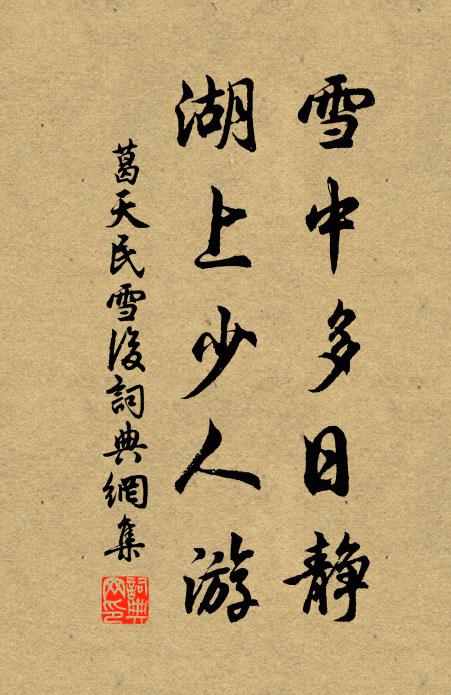 雪中多日静
湖上少人游
葛天民雪後詞典網集
詞典网印